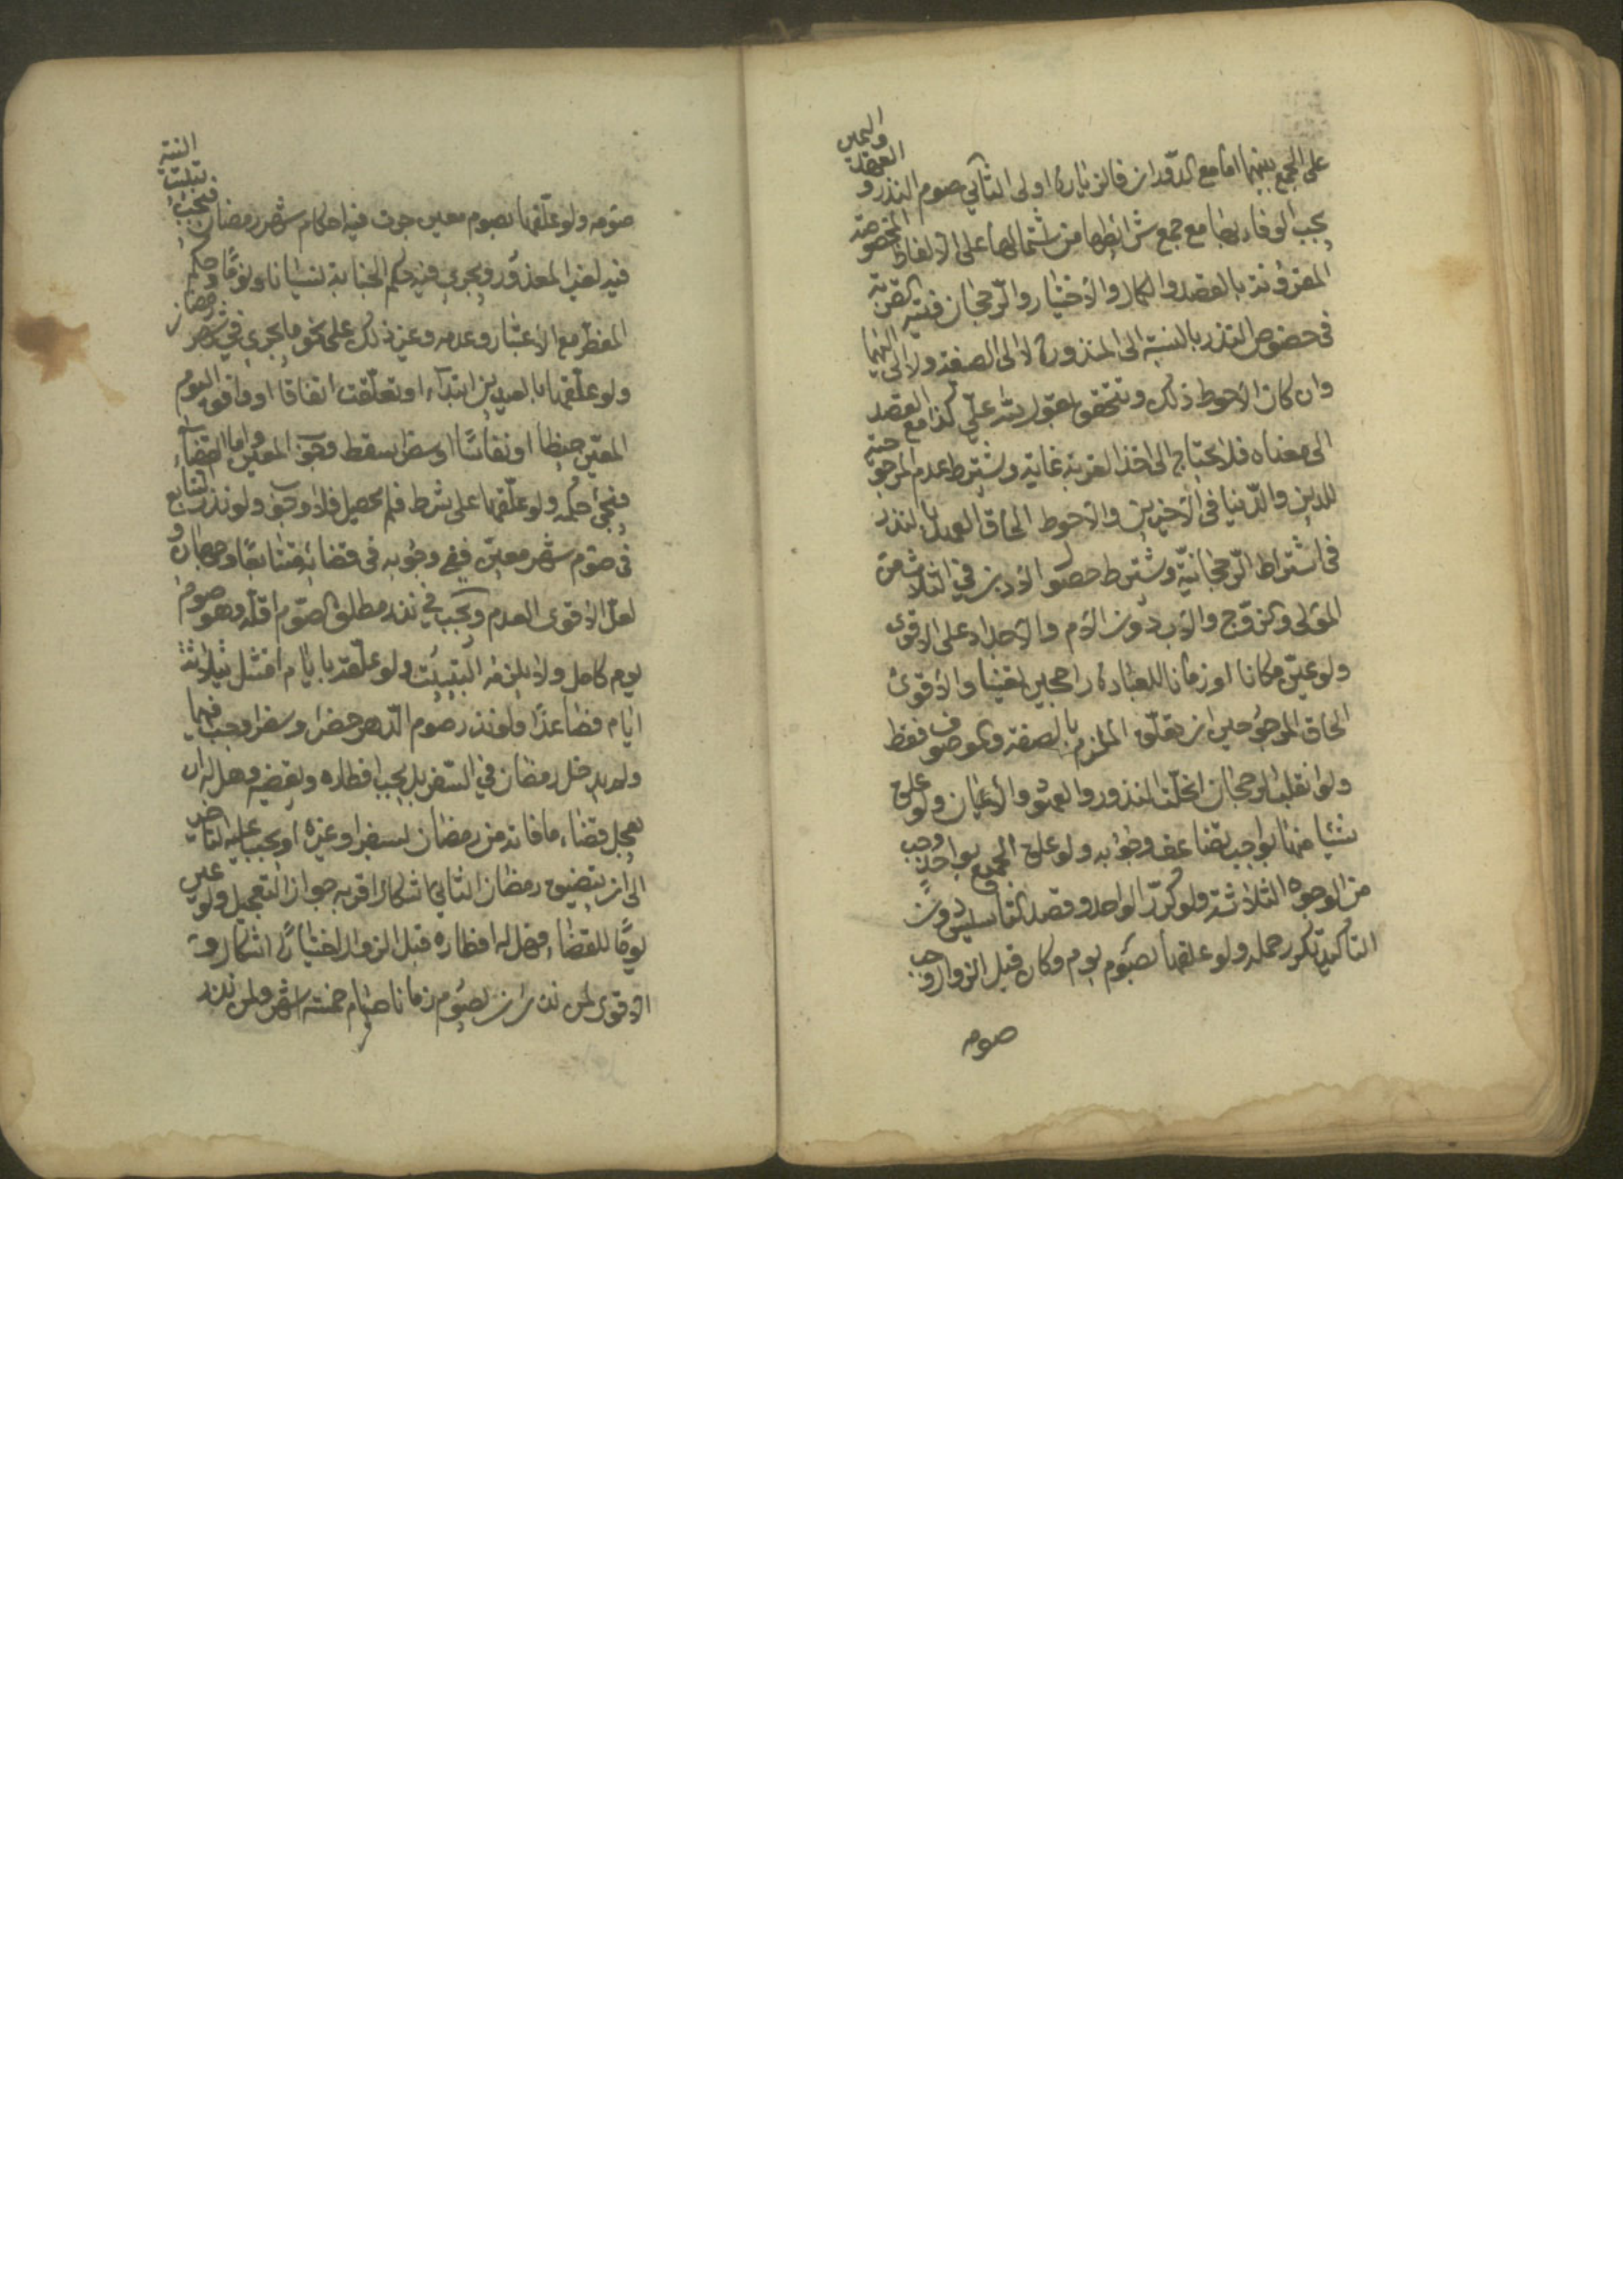 على الجمع بينهما اما مع الدوران فالزيارة اولى الثاني صوم النذر و العهد واليمين
يجب الوفاء بها مع جمع شرائطها من اشتمالها على الالفاظ المخصوصة
المقرونة بالقصد والكمال والاختيار والرجحان فنية القربة
في خصوص النذر بالنسبة الى المنذورة لا الى الصفة ولا اليهما
وان كان الاحوط ذلك وتتحقق بقول لله علي كذا مع القصد
الى معناه فلا يحتاج الى اخذ القربة غاية ويشترط عدم المرجوحية
للدين والدنيا في الاخيرين والاحوط الحاق العهد بالنذر
في اشتراط الرجحانية ويشترط حصول الاذن في الثلاث من
المولى والزوج والاب دون الام والاجداد على الاقوى
ولو عين مكانا او زمانا للعبادة راجحين تعينا والاقوى
الحاق المرجوحين ان تعلق الملتزم بالصفة والموصوف فقط
ولو انقلب الرجحان انحلت النذور والعهود والايمان ولو علق
شيئا منها بواجب تضاعف وجوابه ولو علق الجميع بواحد وجب
من الوجوه الثلاثة ولو كرر الواحد وقصد التاسيس دون
التاكيد تكرر حمله ولو علقها بصوم يوم وكان قبل الزوال وجب
صومه
صومه ولو علقها بصوم معين جرت فيه احكام شهر رمضان فيجب تبييت النية
فيه لغير المعذور ويجري فيه حكم الجنابة نسيانا ونوما وحكم
المفطر مع الاعتبار وعدمه وغير ذلك على نحو ما يجري في شهر رمضان
ولو علقها بالعيدين ابتداء او تعلقت اتفاقا او وافق اليوم
المعين حيضا او نفاسا او سفرا سقط وجوب المعين واما القضاء
فيجئ حكمه ولو علقها على شرط فلم يحصل فلا وجوب ولو نذر التتابع
في صوم شهر معين ففي وجوبه في قضائه متتابعا وجهان و
لعل الاقوى العدم ويجب في نذر مطلق الصوم اقله وهو صوم
يوم كامل ولا يلزمه التبييت ولو علقه بايام امتثل بثلاثة
ايام فصاعدا ولو نذر صوم الدهر حضرا وسفرا وجب فيهما
ولم يدخل رمضان في السفر بل يجب افطاره ويقضيه وهل له ان
يعجل قضاء ما فاته من رمضان لسفر او غيره او يجب عليه التاخير
الى ان يتضيق رمضان الثاني اشكال اقربه جواز التعجيل ولو عين
يوما للقضاء فهل له افطاره قبل الزوال اختيارا اشكال و
الاقوى لمن نذر ان يصوم زمانا صيام خمسة اشهر ولمن نذر